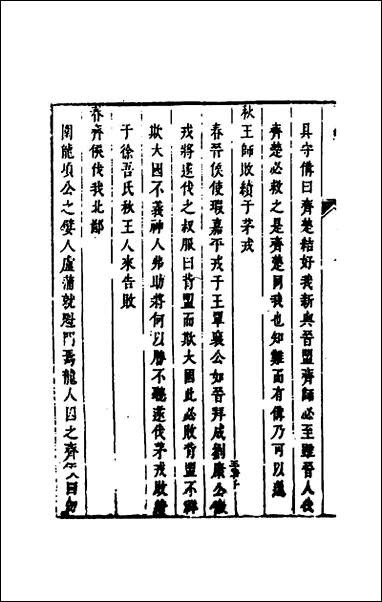 具守備曰齊楚結好我新與晉盟齊師必至雖晉人伐
齊楚必救之是齊楚同我也知難而有備乃可以逞
秋王師敗績于茅戎
春晉侯使瑕嘉平戎于王單襄公如晉拜成劉康公徼
戎將遂伐之叔服曰背盟而欺大國此必敗背盟不祥
欺大國不義神人弗助將何以勝不聽遂伐茅戎敗績
于徐吾氏秋王人來告敗
春齊侯伐我北鄙
圍龍頃公之嬖人盧蒲就魁門焉龍人囚之齊侯曰勿